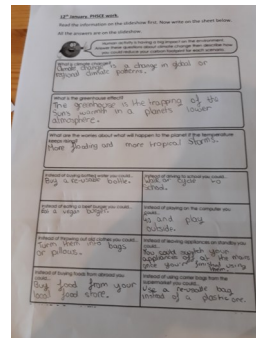 12th January PHSEE work.
Read the information on the slideshow first. Now write on the sheet below.
All the answers are on the slideshow.
Human activity is having a big impact on the environment.
Answer these questions about climate change then describe how
you could reduce your carbon footprint for each scenario.
What is climate change?
Climate change is a change in global or
regional climate patterns.
What is the greenhouse effect?
The greenhouse is the trapping of the
suns warmth in a planets lower
atmosphere.
What are the worries about what will happen to the planet if the temperature
keeps rising?
More flooding and more tropical storms.
Instead of buying bottled water you could...
Buy a re-usable bottle.
Instead of driving to school you could...
Walk or cycle to
school.
Instead of eating a beef burger you could...
Eat a vegan burger.
Instead of playing on the computer you
could...
Go and play
outside.
Instead of throwing out old clothes you could...
Turn them into bags
or pillows.
Instead of leaving appliances on standby you
could...
You could switch your
appliances off at the mains
once you finished using
them.
Instead of buying foods from abroad you
could...
Buy food from your
local food store.
Instead of using carrier bags from the
supermarket you could...
Use a re-usable bag
instead of a plastic one.